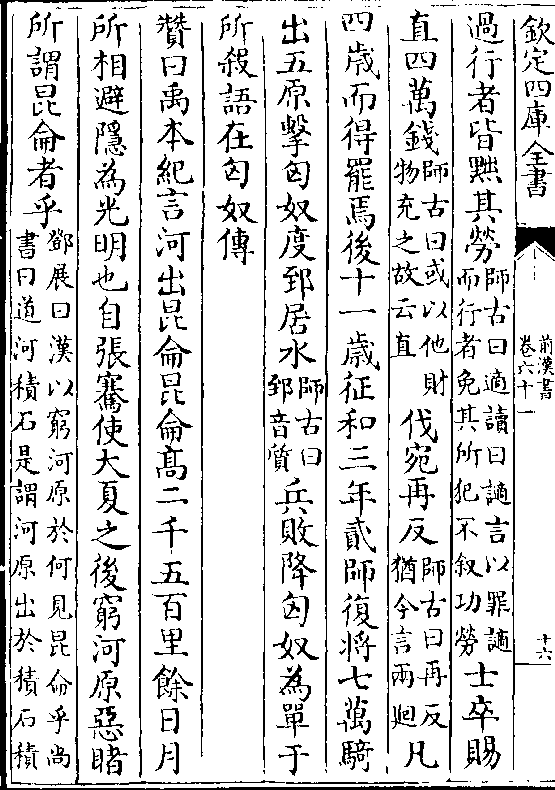 欽定四庫全書
前漢書
卷六十一
十六
過行者皆黜其勞師古曰適讀曰謫言以罪謫而行者免其所犯不叙功勞士卒賜
直四萬錢師古曰或以他財物充之故云直伐宛再反師古曰再反猶今言兩廻凡
四歲而得罷焉後十一歲征和三年貳師復將七萬騎
出五原擊匈奴度郅居水師古曰郅音質兵敗降匈奴為單于
所殺語在匈奴傳
贊曰禹本紀言河出昆侖昆侖髙二千五百里餘日月
所相避隱為光明也自張騫使大夏之後窮河原惡睹
所謂昆侖者乎鄧展曰漢以窮河原於何見昆侖乎尚書曰道河積石是謂河原出於積石積